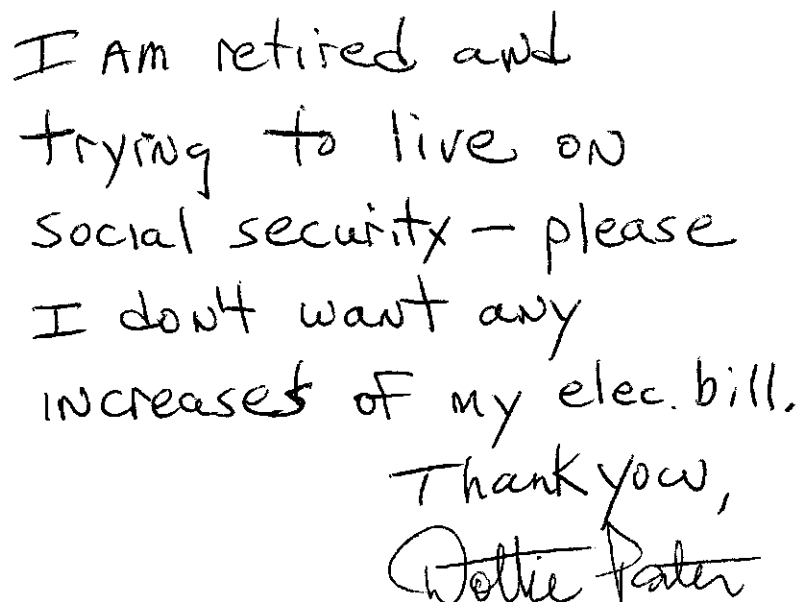 I AM retired and
trying to live on
social security – please
I don't want any
increases of my elec. bill.
Thank you,
Dottie